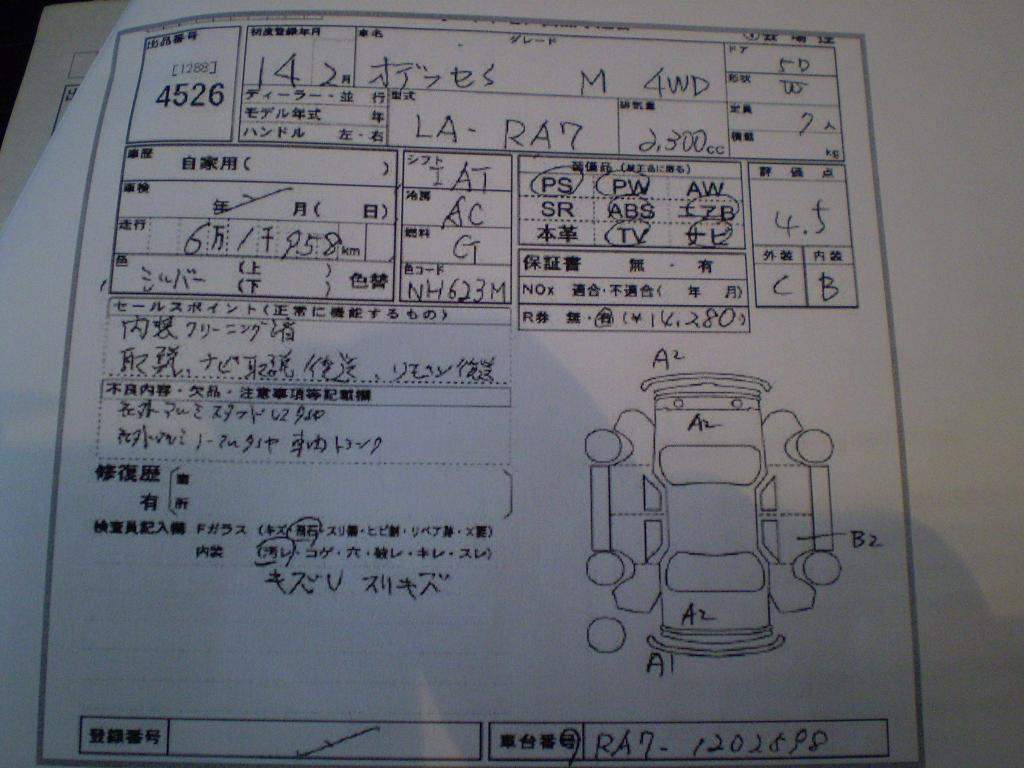 出品番号
[1288]
4526
初度登録年月 車名 グレード ドア
14 2月 オデッセイ M 4WD 5D
形状 W
ディーラー・並 行 型式 排気量 定員
モデル年式 年
ハンドル 左・右 LA- RA7 2,300cc 7人
積載 kg
車歴 自家用( )
シフト IAT
装備品(純正品に限る)
PS PW AW
SR ABS エアB
本革 TV ナビ
評価点
4.5
車検 年 月( 日)
冷房 AC
走行 6万1千958km
燃料 G
外装 内装
C B
色 シルバー (上 ) (下 ) 色替
色コード NH623M
保証書 無・有
NOx 適合・不適合( 年 月)
R券 無・有(¥14,280)
セールスポイント(正常に機能するもの)
内装クリーニング済
取説、ナビ取説 後送、リモコン後送
不良内容・欠品・注意事項等記載欄
社外アルミ スタッドレスタイヤ
社外アルミ ノーマルタイヤ 車内トランク
修復歴
有 箇
所
検査員記入欄 Fガラス (キズ・飛石・スリ傷・ヒビ割・リペア跡・X要)
内装 (汚レ・コゲ・穴・破レ・キレ・スレ)
キズU スリキズ
A2
A2
B2
A2
A1
登録番号
車台番号 RA7-1202598